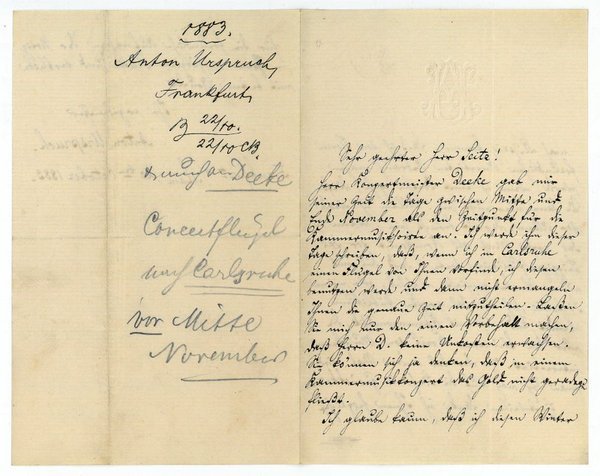 1883.
Anton Urspruch,
Frankfurt,
B 22/10.
22/10 CB.
Deeke
Concertflügel
nach Carlsruhe
vor Mitte
November
Sehr geehrter Herr Seitz!
Herr Konzertmeister Deeke gab mir
seiner Zeit die Tage zwischen Mitte und
Ende November als den Zeitpunkt für die
Kammermusiksoirée an. Ich werde ihm dieser
Tage schreiben, daß, wenn ich in Carlsruhe
einen Flügel von Ihnen vorfinde, ich diesen
benutzen werde und dann nicht ermangeln
Ihnen die genaue Zeit mitzutheilen. Lassen
Sie mich nur den einen Vorbehalt machen,
daß Herrn D. keine Unkosten erwachsen.
Sie können sich ja denken, daß in einem
Kammermusikkonzert das Geld nicht geradezu
fließt.
Ich glaube kaum, daß ich diesen Winter